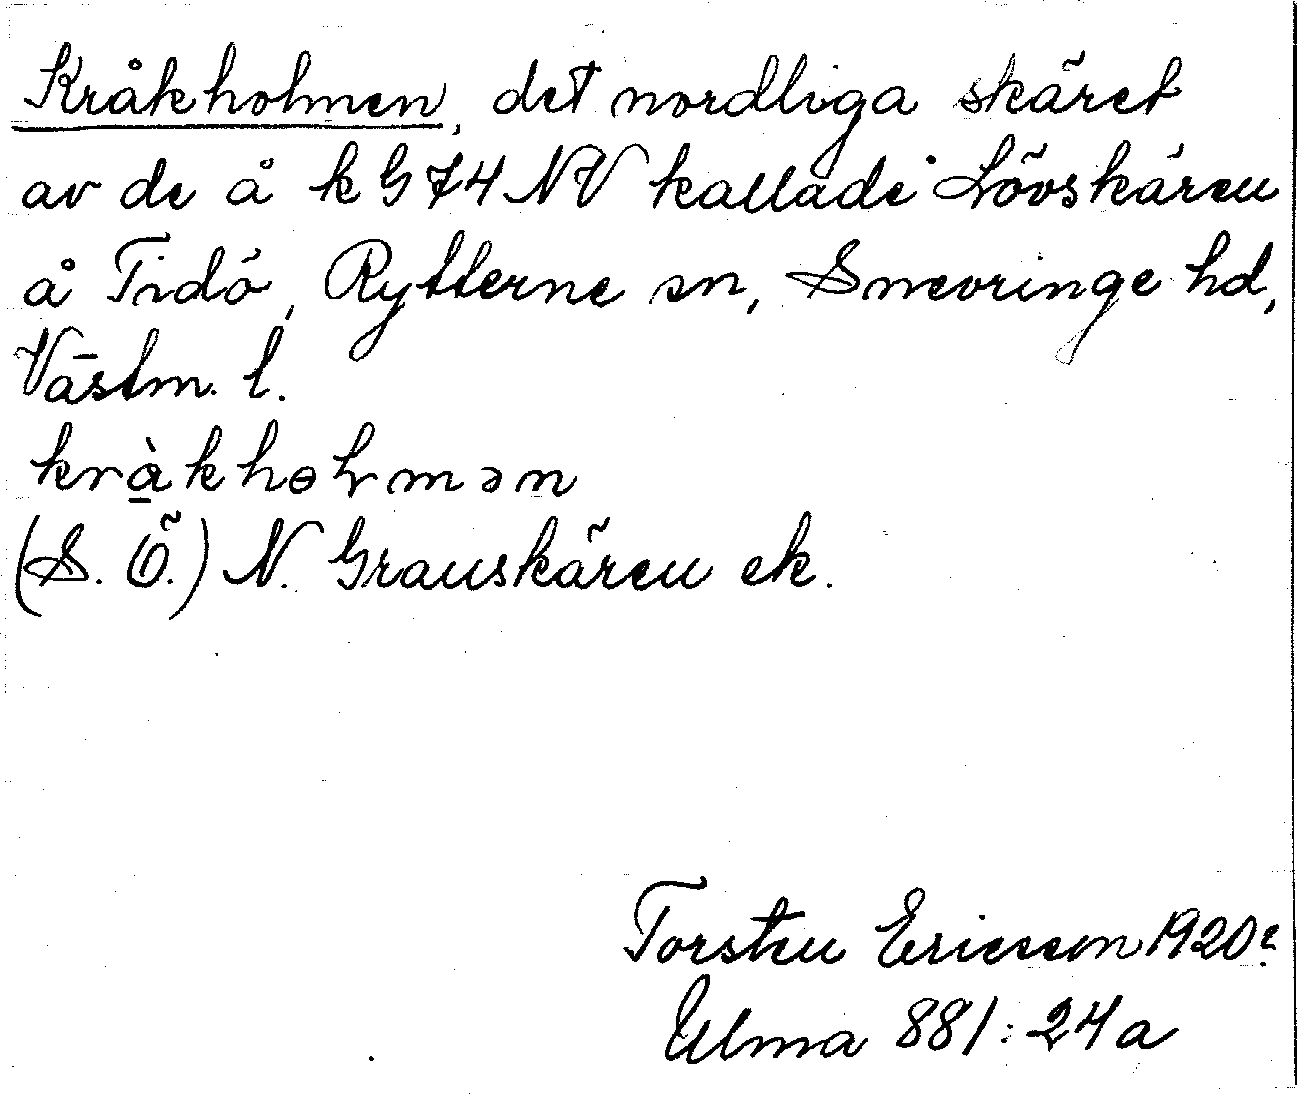 Kråkholmen, det nordliga skäret
av de å k G 74 NV kallade Lövskären
å Tidö, Rytterne sn, Snevringe hd,
Västm. l.
kràkhɵlmən
(S. Ö.) N. Granskären ek.
Torsten Ericsson 1920?
Ulma 881:24a